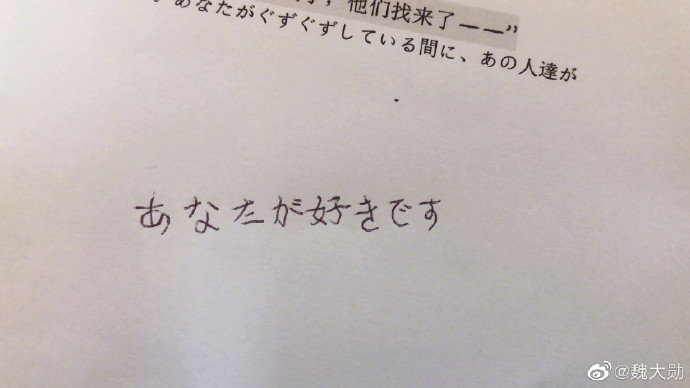 ，他们找来了——”
あなたがぐずぐずしている間に、あの人達が
あなたが好きです
@魏大勋